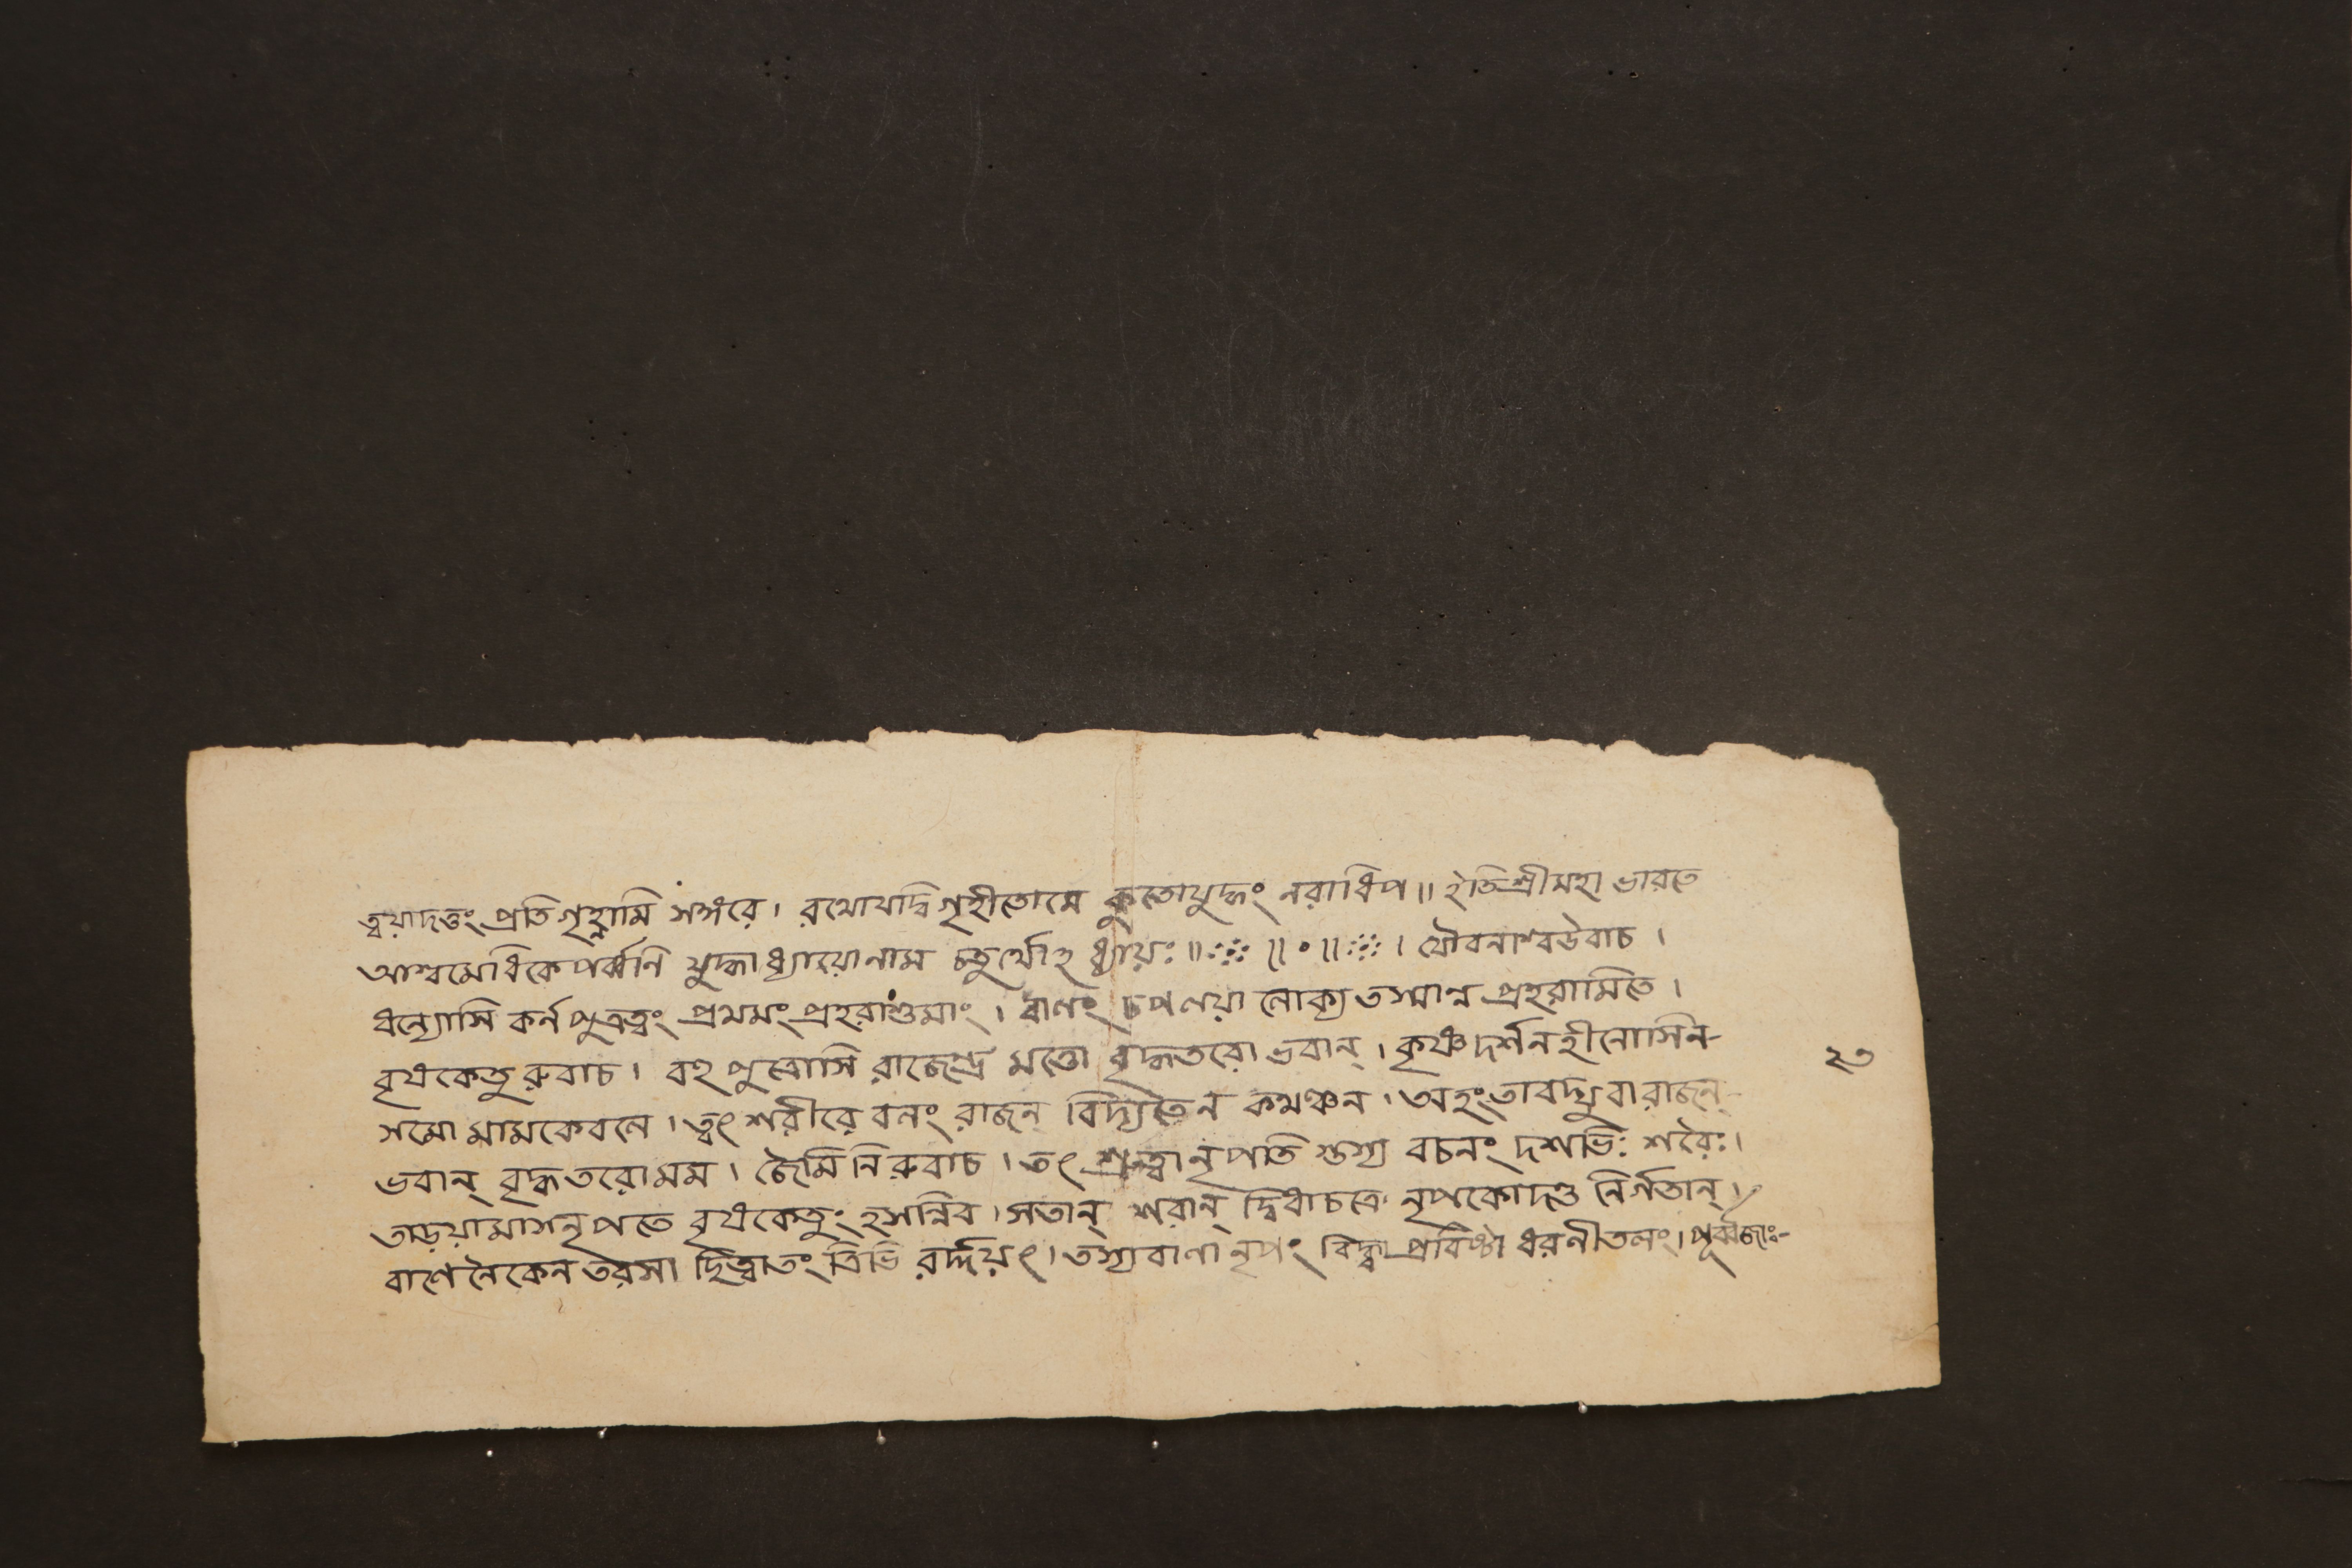 ত্বয়াদত্তং প্রতিগৃহ্ণামি সঙ্গরে। রথোযদ্বি গৃহীতোমে কুতোযুদ্ধং নরাধিপ॥ ইতিশ্রীমহাভারতে
আশ্বমেধিকেপর্ব্বনি যুদ্ধাধ্যায়োনাম চতুর্থোঽধ্যায়ঃ॥ ॥०॥ । যৌবনাশ্বউবাচ।
ধন্যোসি কর্নপুত্রত্বং প্রথমং প্রহরাশুমাং। বাণং চপণয়া প্রহরামিতে।
বৃষকেতুরুবাচ। বহুপুত্রোসি রাজেন্দ্র মত্তো বৃদ্ধতরো ভবান্। কৃষ্ণদর্শনহীনোসিন-
সমো মামকেবনে। ত্বং শরীরে বনং রাজন্ বিদ্যতৈন কমঞ্চন। অহংতাবদ্যুবারাজন্-
ভবান্ বৃদ্ধতরোমম। জৈমিনিরুবাচ। তৎ শ্রুত্বানৃপতি স্তস্য বচনং দশভিঃ শরৈঃ।
তাড়য়ামাসনৃপতে বৃষকেতুং হসন্নিব। সতান্ শরান্ দ্বিধাচক্রে নৃপকোদণ্ড নির্গতান্।
বাণেনৈকেন তরসা ছিত্বাতং ত্রিভি রর্দ্দয়ৎ। তস্যবাণা নৃপং বিদ্ধ্বা প্রবিষ্টা ধরনীতলং। পূর্ব্বজাঃ-
২৩